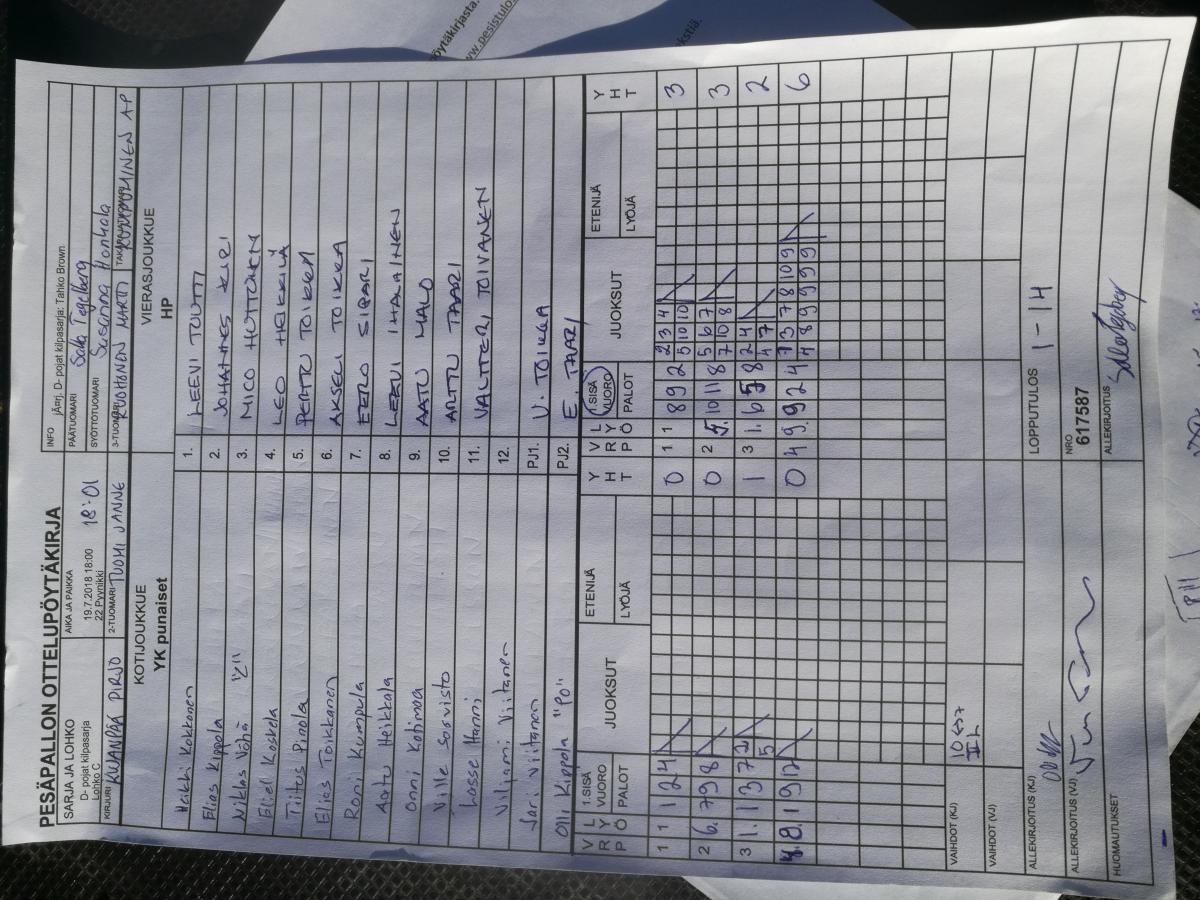 öytäkirjasta.
www.pesistulos.
PESÄPALLON OTTELUPÖYTÄKIRJA
SARJA JA LOHKO
D- pojat kilpasarja
Lohko C
AIKA JA PAIKKA
19.7.2018 18:00 18:01
22 Pyynikki
INFO
D- pojat kilpasarja: Tahko Brown
PÄÄTUOMARI Salla Tegelberg
SYÖTTÖTUOMARI Susanna Honkala
KIRJURI PIRJO
2-TUOMARI TUOMI JANNE
3-TUOMARI RUOHONEN MARTTI
KOTIJOUKKUE
YK punaiset
VIERASJOUKKUE
HP
Heikki Kokkonen 1. LEEVI TOUTTI
Elias Kippola 2. JOHANNES KIRI
Niklas Vähä 3. MICO HUTTUNEN
Eliel Koskela 4. LEO HEIKKILÄ
Tiitus Pinola 5. PERTU TOIKKA
Elias Toikkanen 6. AKSELI TOIKKA
Roni Kumpula 7. EERO SIPARI
Aatu Heikkala 8. LEEVI IHALAINEN
Onni Kotimaa 9. AATU MALO
Ville Suovisto 10. ARTTU TAARI
Lasse Hanni 11. VALTTERI TOIVANEN
Viljami Viitanen 12.
Jari Viitanen PJ1. V. TOIKKA
Olli Kippola "PO" PJ2. E. TAARI
V R P L Y Ö 1.SISÄ VUORO PALOT JUOKSUT ETENIJÄ LYÖJÄ Y H T
V R P L Y Ö 1.SISÄ VUORO PALOT JUOKSUT ETENIJÄ LYÖJÄ Y H T
1 1 1 2 4 0
1 1 8 9 2 2 3 4 3
5 10 10
2 6. 7 9 8 0
2 5. 10 11 8 5 6 7 3
7 10 8
3 1. 1 3 7 2 1
5
3 1. 6 5 8 2 4 2
4 7
4. 8. 1 9 2 0
4 9. 9 2 4 7 3 7 8 10 9 6
4 8 9 9 9 9
VAIHDOT (KJ) 10 <-> 7
VAIHDOT (VJ)
ALLEKIRJOITUS (KJ)
LOPPUTULOS 1 - 14
ALLEKIRJOITUS (VJ)
NRO
617587
HUOMAUTUKSET
ALLEKIRJOITUS